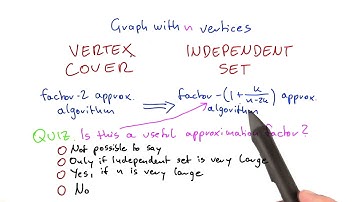 Graph with n vertices
VERTEX COVER
INDEPENDENT SET
factor-2 approx. algorithm
⟹
factor-(1+k/(n-2k)) approx. algorithm
QUIZ. Is this a useful approximation factor?
O Not possible to say
O Only if Independent set is very large
O Yes, if n is very large
O No